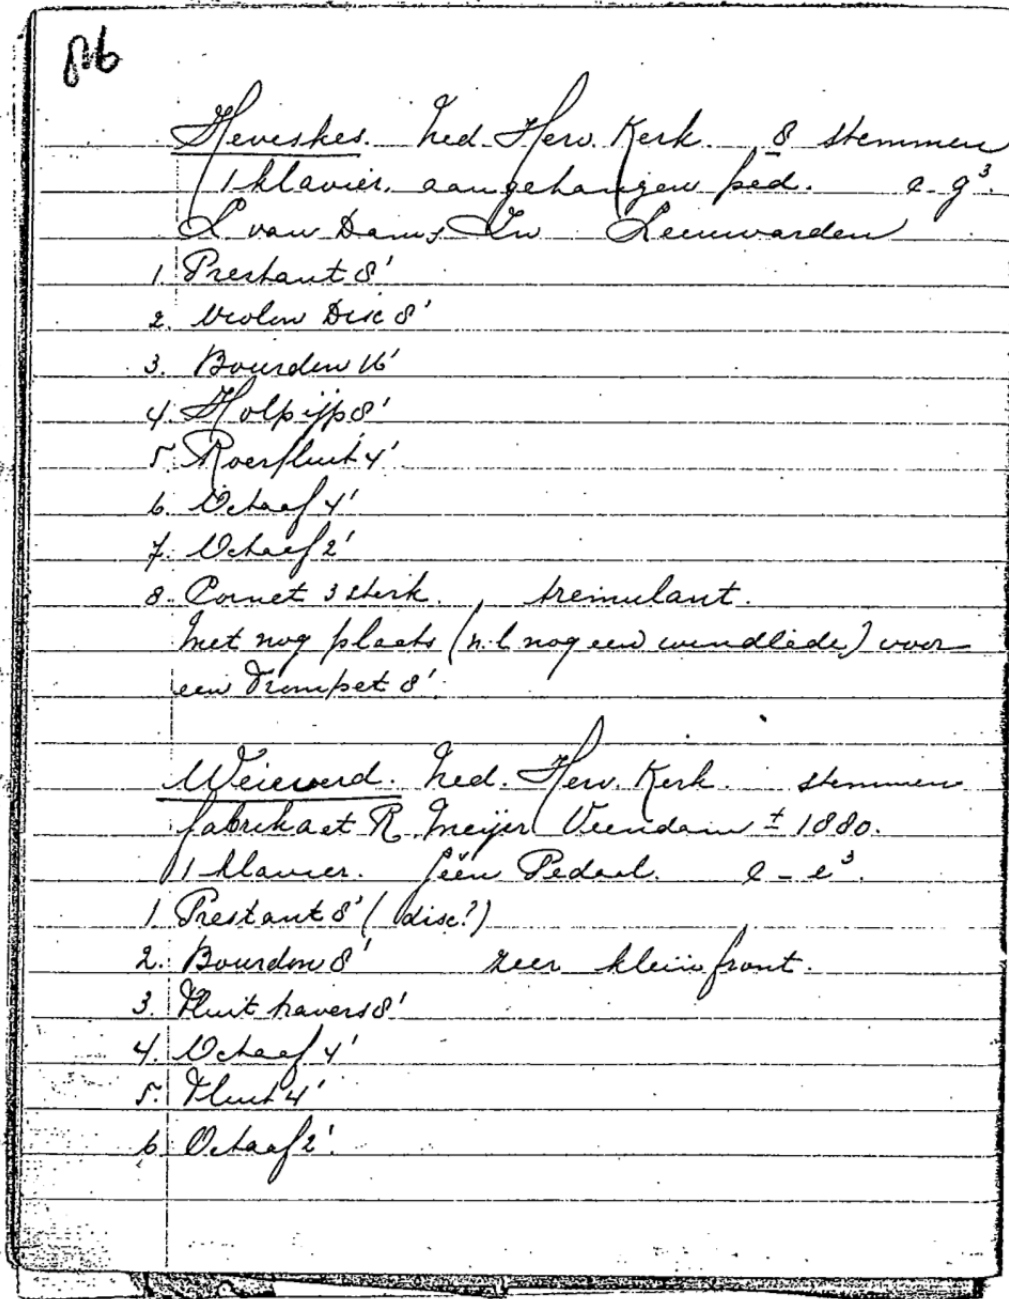 Heveskes. Ned. Herv. Kerk. 8 stemmen
1 klavier. aangehangen ped. c-g³.
L van Dam & Zn Leeuwarden
1. Prestant 8'
2. Violon Disc 8'
3. Bourdon 16'
4. Holpijp 8'
5. Roerfluit 4'
6. Octaaf 4'
7. Octaaf 2'
8. Cornet 3 sterk. tremulant.
Met nog plaats (n.l nog een windlade) voor
een Trompet 8'.
Weiewerd. Ned. Herv. Kerk. stemmen
fabrikaat R. Meijer Veendam ± 1880.
1 klavier. Géén Pedaal. c-e³.
1. Prestant 8' (disc?)
2. Bourdon 8' zeer klein front.
3. Fluit travers 8'
4. Octaaf 4'
5. Fluit 4'
6. Octaaf 2'.